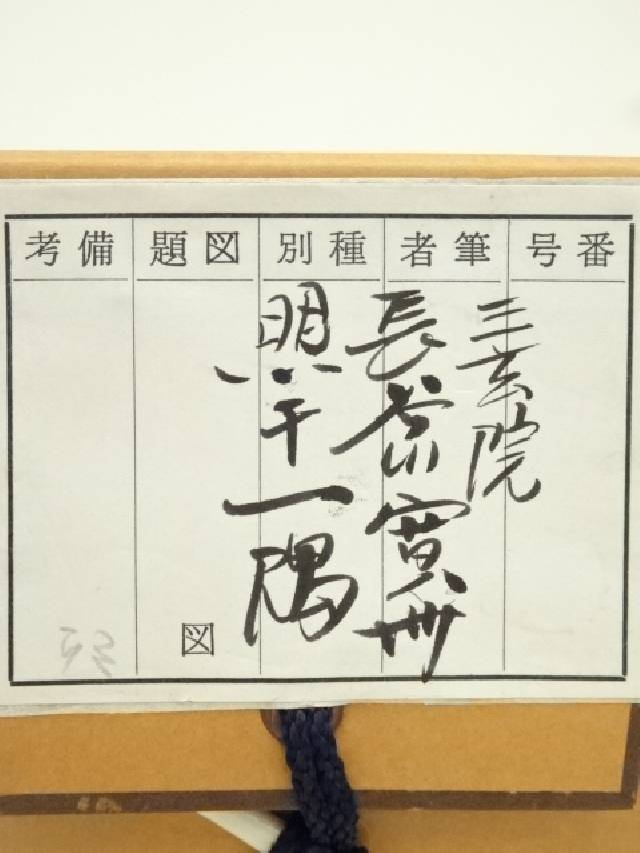 番号
筆者
種別
図題
備考
三玄院
長谷川寛州
照于一隅
図